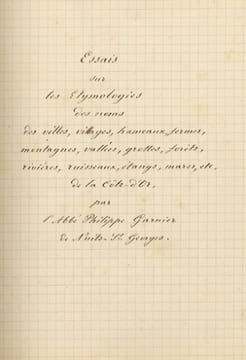 Essais
sur
les Etymologies
des noms
des villes, villages, hameaux, fermes,
montagnes, vallées, grottes, forêts,
rivières, ruisseaux, étangs, mares, etc,
de la Côte-d'Or,
par
l'Abbé Philippe Garnier
de Nuits-St Georges.